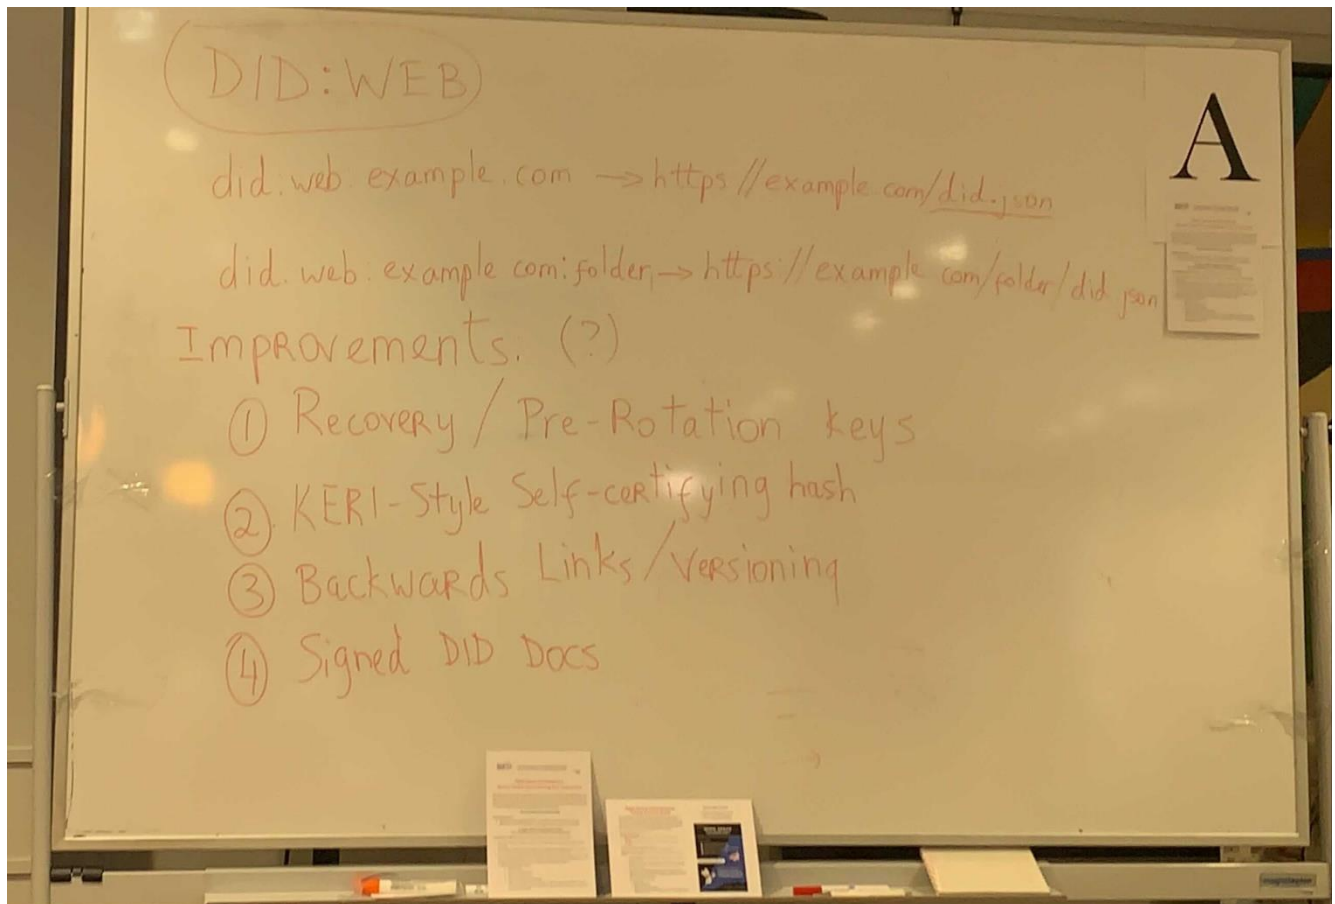 DID:WEB
A
did:web:example.com → https://example.com/did.json
did:web:example.com:folder → https://example.com/folder/did.json
Improvements. (?)
① Recovery / Pre-Rotation keys
② KERI-Style Self-certifying hash
③ Backwards Links/Versioning
④ Signed DID Docs